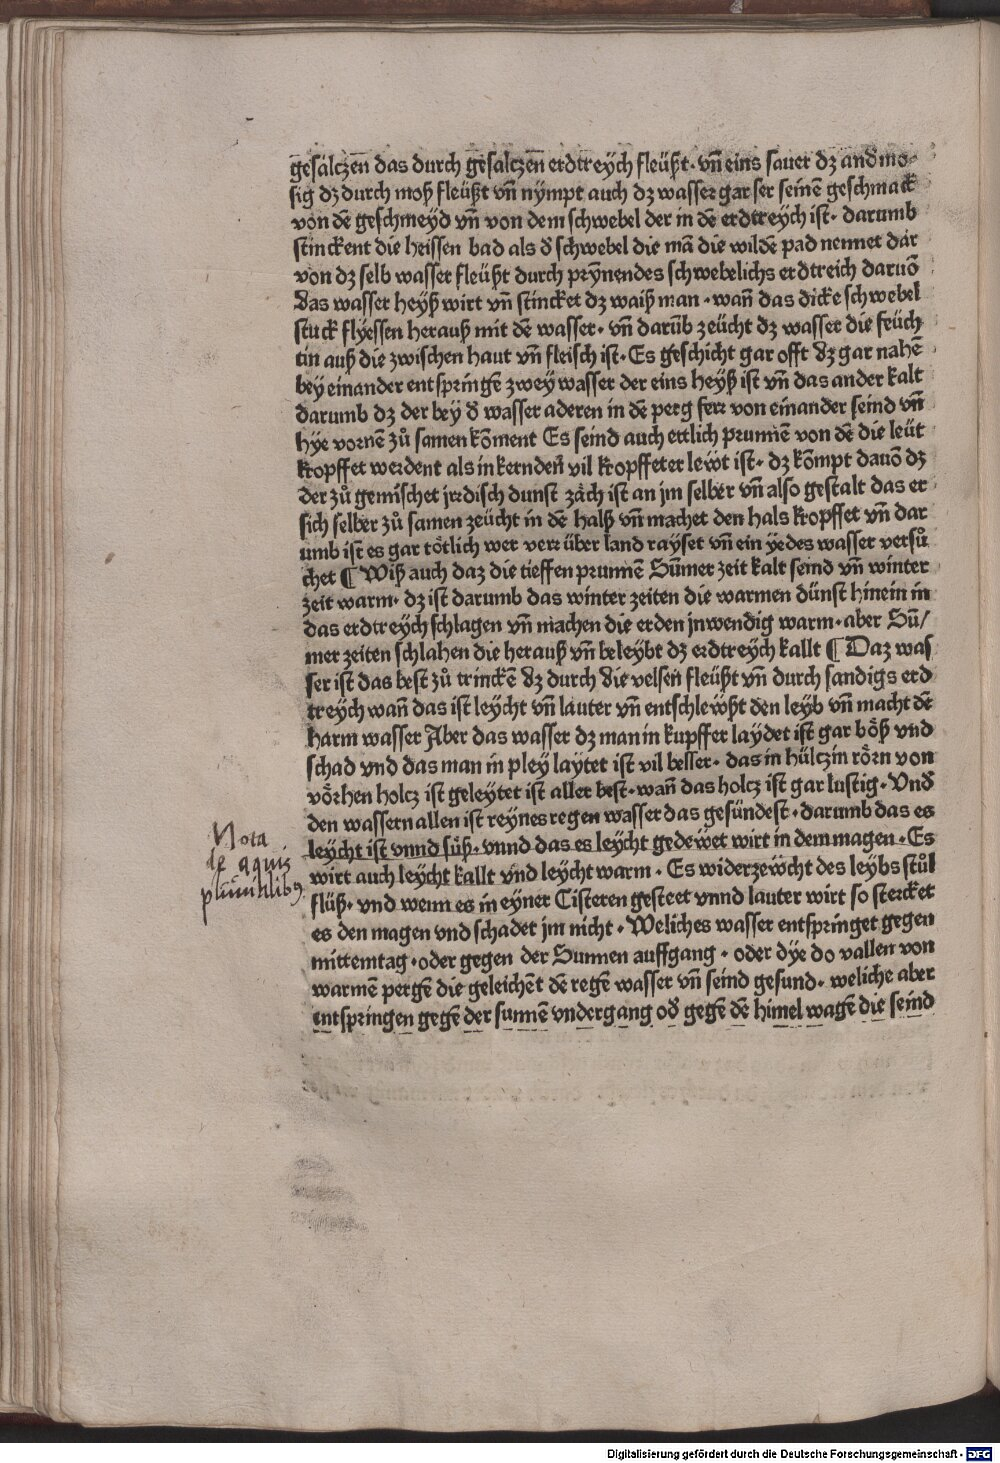 gesalczen das durch gesalczen erdtreÿch fleüßt · vñ eins sauer dz and̄ mo-
sig dz durch moß fleüßt vñ nÿmpt auch dz wasser gar ser seinē geschmack
von dē geschmeÿd vñ von dem schwebel der in dē erdtreÿch ist · darumb
stinckent die heissen bad als d̄ schwebel die mā die wildē pad nennet dar
von dz selb wasser fleüßt durch prÿnendes schwebelichs erdtreich daruō
das wasser heÿß wirt vñ stincket dz waiß man · wañ das dicke schwebel
stuck flÿessen herauß mit dē wasser · vñ darūb zeücht dz wasser die feüch
tin auß die zwischen haut vñ fleisch ist · Es geschicht gar offt dz gar nahē
beÿ einander entspringē zweÿ wasser der eins heÿß ist vñ das ander kalt
darumb dz der beÿ d̄ wasser aderen in dē perg ferr von einander seind vñ
hÿe vornē zů samen kōment Es seind auch ettlich prunnē von dē die leüt
kropffet werdent als in kernden̄ vil kropffeter lewt ist · dz kōmpt dauō dz
der zů gemischet jrdisch dunst zäch ist an jm selber vñ also gestalt das er
sich selber zů samen zeücht in dē halß vñ machet den hals kropffet vñ dar
umb ist es gar tötlich wer verr über land raÿset vñ ein ÿedes wasser versů
chet ¶ Wiß auch daz die tieffen prunnē Sūmer zeit kalt seind vñ winter
zeit warm · dz ist darumb das winter zeiten die warmen dünst hinein in
das erdtreÿch schlagen vñ machen die erden jnwendig warm · aber Sū/
mer zeiten schlahen die herauß vñ beleÿbt dz erdtreÿch kallt ¶ Daz was
ser ist das best zů trinckē dz durch die velsen fleüßt vñ durch sandigs erd
treÿch wañ das ist leÿcht vñ lauter vñ entschlewßt den leÿb vñ macht dē
harm wasser Aber das wasser dz man in kupffer laÿdet ist gar böß vnd
schad vnd das man in pleÿ laÿtet ist vil besser · das in hülczin rörn von
vörhen holcz ist geleÿtet ist aller best · wañ das holcz ist gar lustig · Vnd̄
den wassern allen ist reÿnes regen wasser das gesündest · darumb das es
leÿcht ist vnnd süß · vnnd das es leÿcht gedewet wirt in dem magen · Es
wirt auch leÿcht kallt vnd leÿcht warm · Es widerzewcht des leÿbs stůl
flüß · vnd wenn es in eÿner Cisteren gesteet vnnd lauter wirt so stercket
es den magen vnd schadet jm nicht · Weliches wasser entspringet gegen
mittemtag · oder gegen der Sunnen auffgang · oder dÿe do vallen von
warmē pergē die geleichēt dē regē wasser vñ seind gesund · weliche aber
entspringen gegē der sunnē vndergang od̄ gegē dē himel wagē die seind
Nota
de aquis
pluuialibꝰ
Digitalisierung gefördert durch die Deutsche Forschungsgemeinschaft - DFG